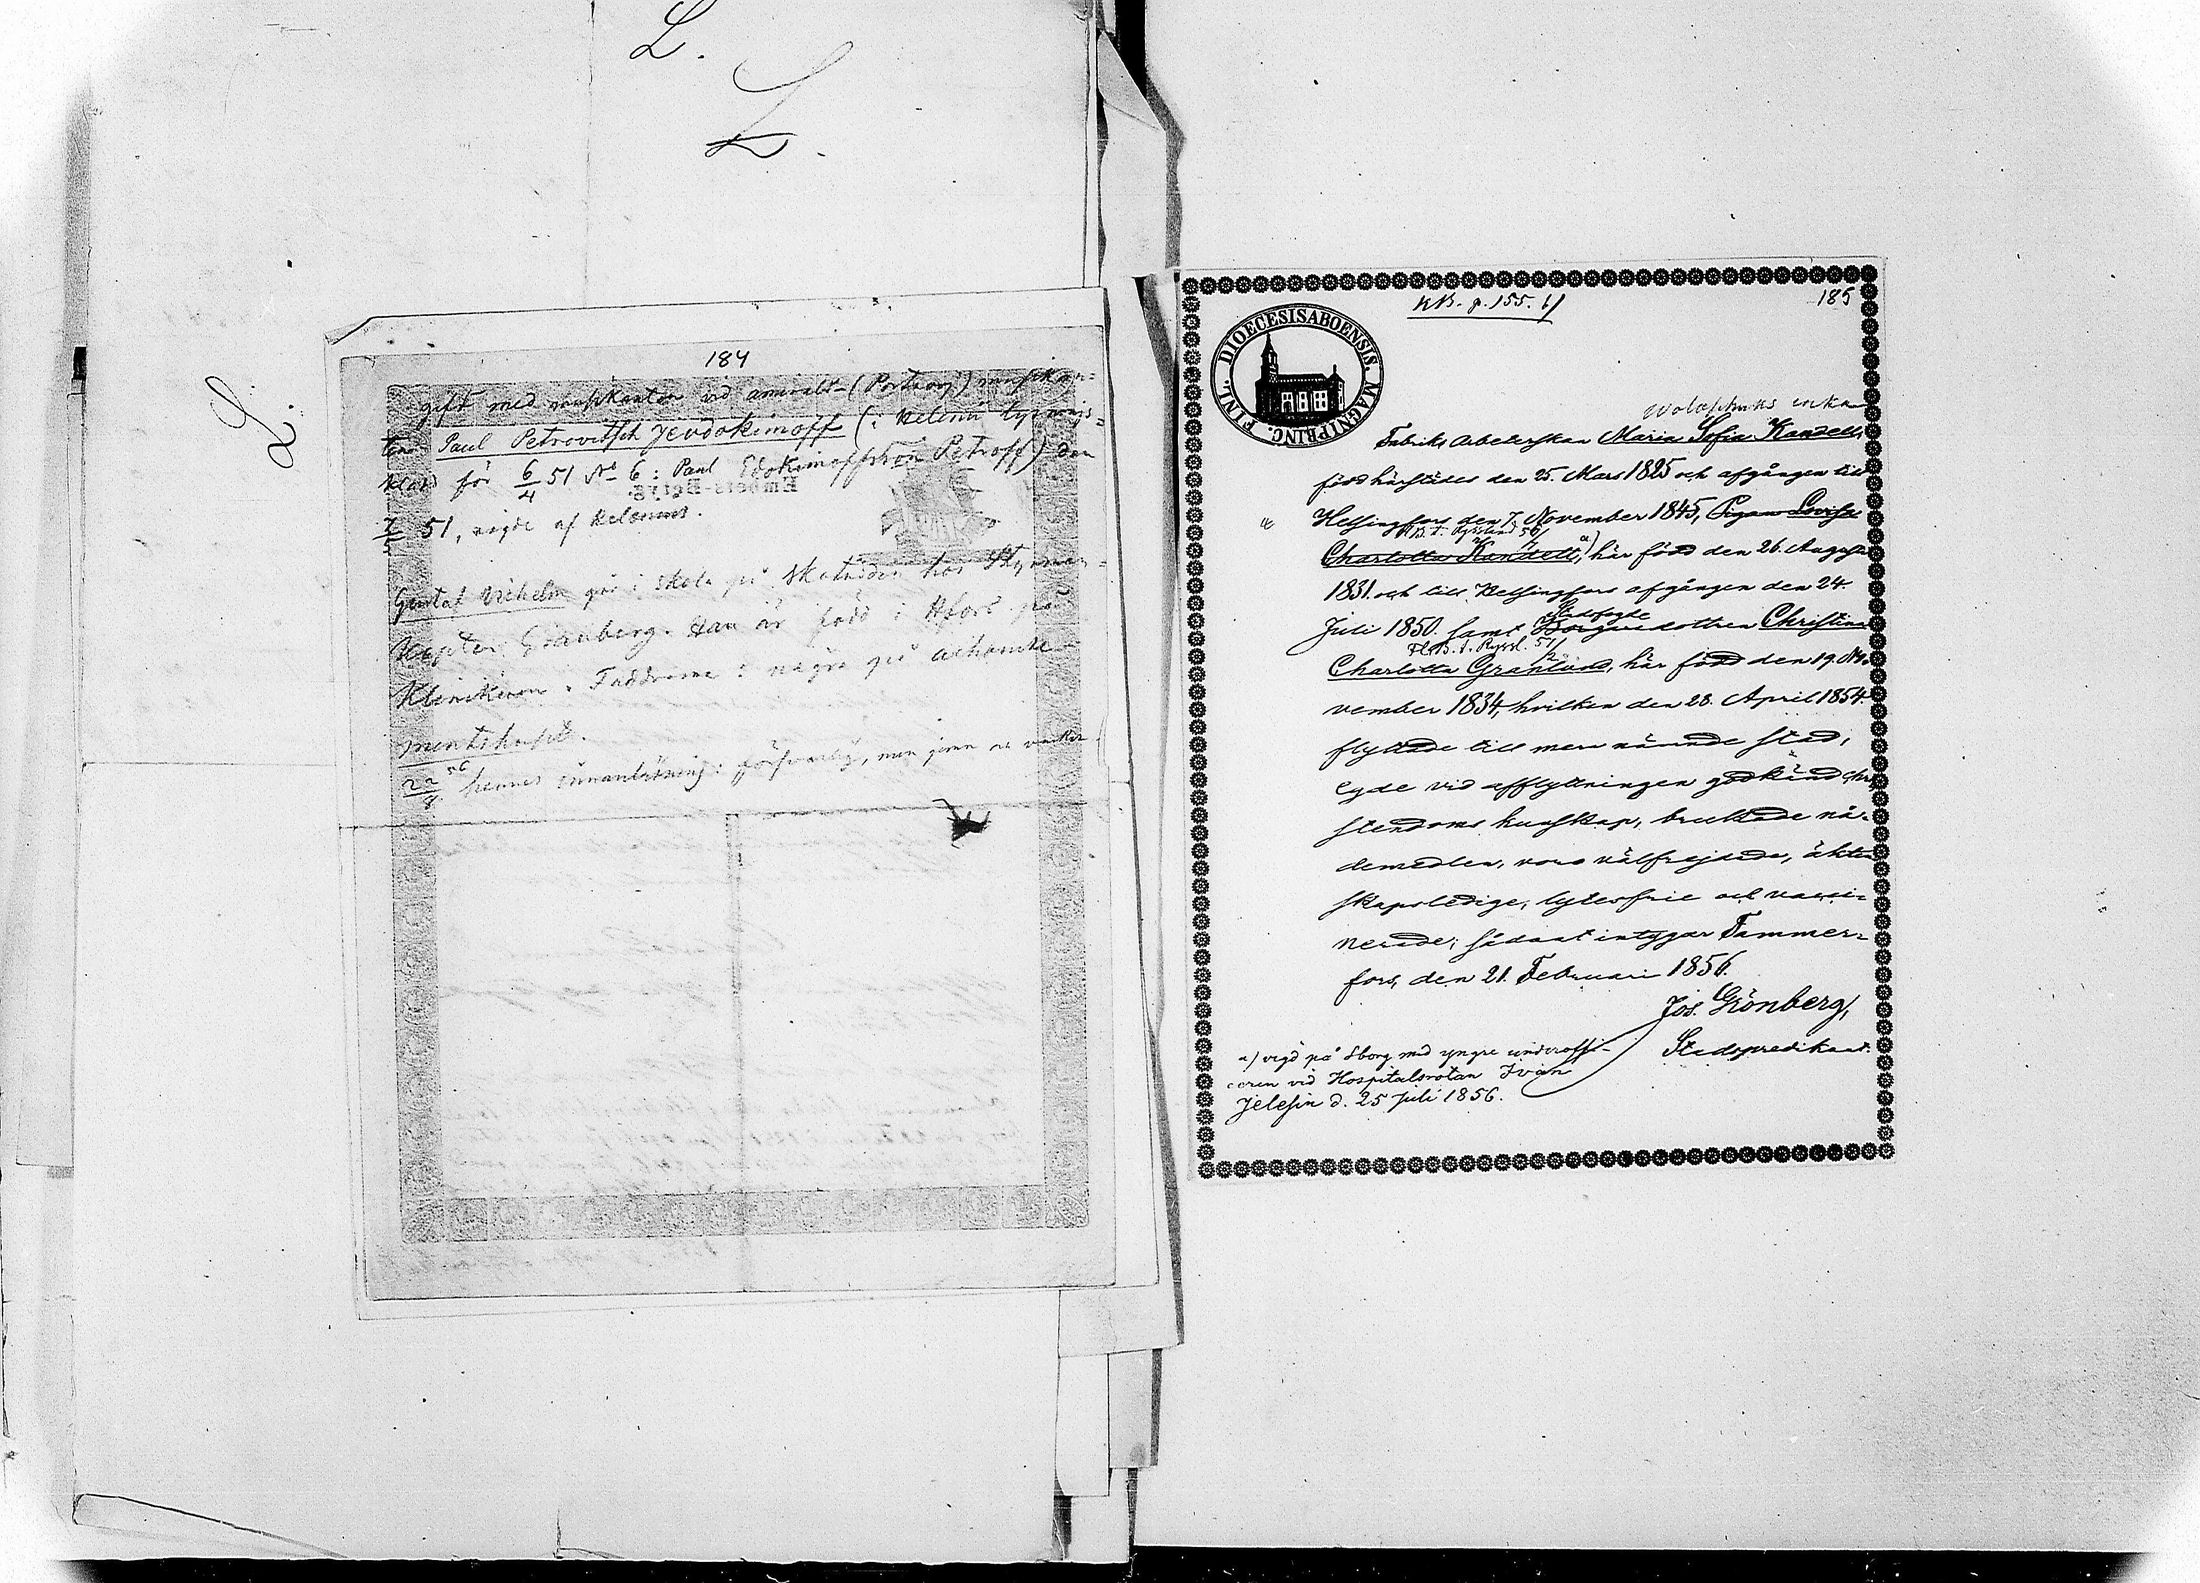 L.
L.
L.
184
gift med musikanten vid amiralt- (Portvorj) musikan=
ten Paul Petrovitsch Jevdokimoff (i Relenii
för 6/4 51 No 6: Paul Edokimoffsson Petroff) den
Embets-Betyg.
7/5 51, vigde af Relanius.
Gustaf Vilhelm går i skola på Skatudden hos Styrman=
Granberg. Han är född i Hfors på
Kliniken. Faddrarne: några på
22/8 56 hennes innanläsning: försvarlig, men
KB. p. 155. b/
185
DIOECESIS ABOENSIS. MAGNI PRINC. FINL.
enka
Fabriks Arbeterskan Maria Sofia Kandell,
född härstädes den 25. Mars 1825 och afgången till
Helsingfors den 7. November 1845, Pigan Lovisa
Charlotta Kandell, a) här född den 26. Augusti
1831. och till Helsingfors afgången den 24.
Stadsfogde
Juli 1850. samt Borgaredottren Christina
Charlotta Granlund, här född den 19. No-
vember 1834, hvilken den 28. April 1854.
flyttade till mera nämnde stad,
egde vid afflyttningen godkänd chri
stendoms kunskap, bruktade nå-
demedlen, voro välfrejdade, äkten
skapsledige, lytesfrie och vacci=
nerade; sådant intygar Tammer=
fors, den 21. Februari 1856.
Jos. Grönberg,
Stadspredikant.
a) vigd på Sborg med yngre underoffi-
ceren vid Hospitalsrotan Ivan
Jelesin d. 25 Juli 1856.